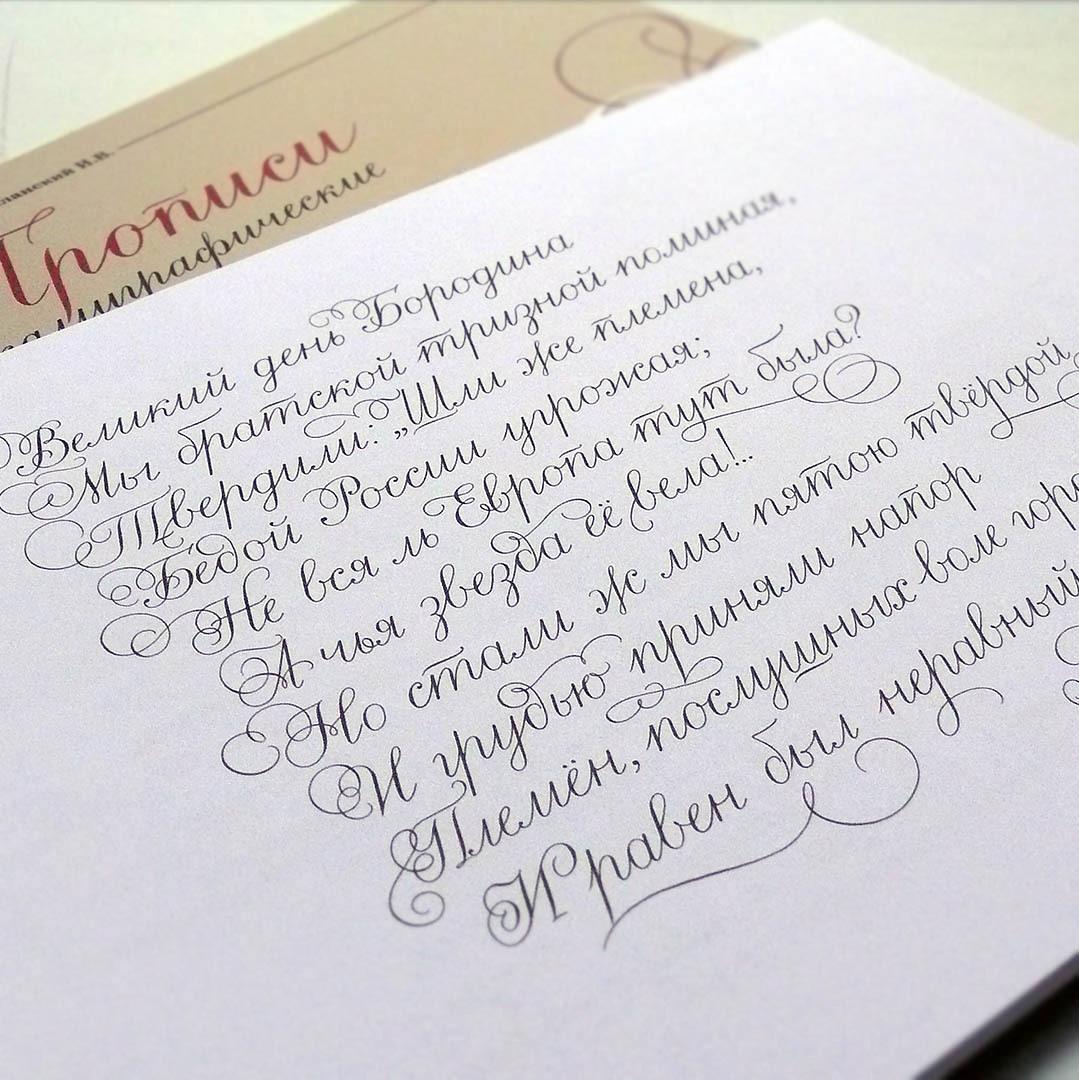 Прописи
Великий день Бородина
Мы братской тризной поминая,
Твердили: „Шли же племена,
Бедой России угрожая;
Не вся ль Европа тут была?
А чья звезда её вела!..
Но стали ж мы пятою твёрдой
И грудью приняли напор
Племён, послушных воле
И равен был неравный